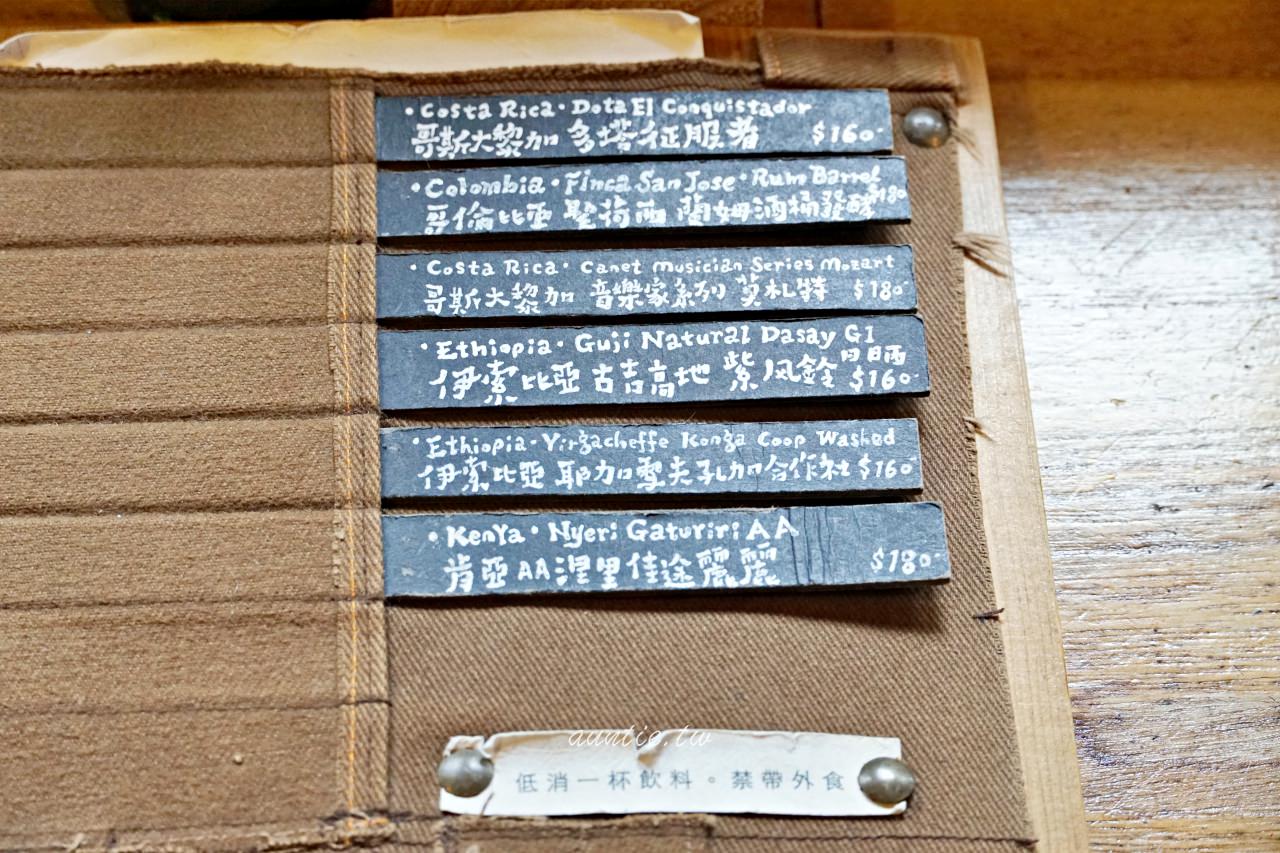 ·Costa Rica·Dota El Conquistador
哥斯大黎加 多塔征服者 $160-
·Colombia·Finca San Jose·Rum Barrel
哥倫比亞 聖荷西 蘭姆酒桶發酵 $180
·Costa Rica·Canet musician Series Mozart
哥斯大黎加 音樂家系列 莫札特 $180-
·Ethiopia·Guji Natural Dasay G1
伊索比亞 古吉高地 紫風鈴 日晒 $160-
·Ethiopia·Yirgacheffe Konga Coop Washed
伊索比亞 耶加雪夫孔加合作社 $160
·Kenya·Nyeri Gaturiri AA
肯亞AA涅里佳途麗麗 $180-
auntie.tw
低消一杯飲料。禁帶外食